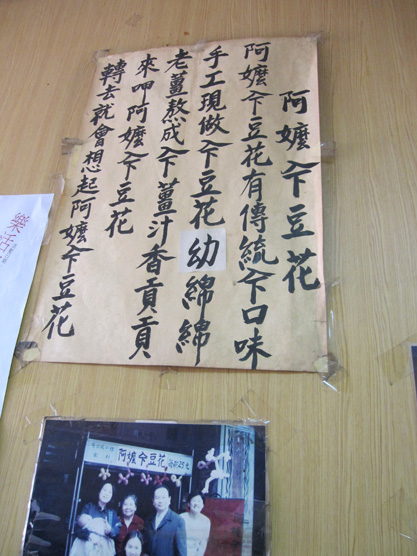 阿嬤个豆花
阿嬤个豆花有傳統个口味
手工現做个豆花幼綿綿
老薑熬成个薑汁香貢貢
來呷阿嬤个豆花
轉去就會想起阿嬤个豆花
樂活
阿嬤个豆花